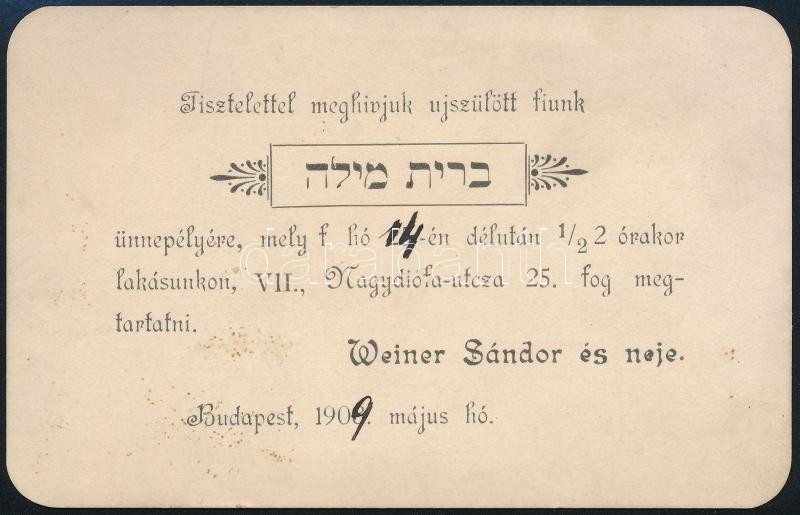 Tisztelettel meghivjuk ujszülött fiunk
ברית מילה
ünnepélyére, mely f. hó 14-én délután 1/2 2 órakor
lakásunkon, VII., Nagydiófa-utcza 25. fog meg-
tartatni.
Weiner Sándor és neje.
Budapest, 1909. május hó.
darabanth